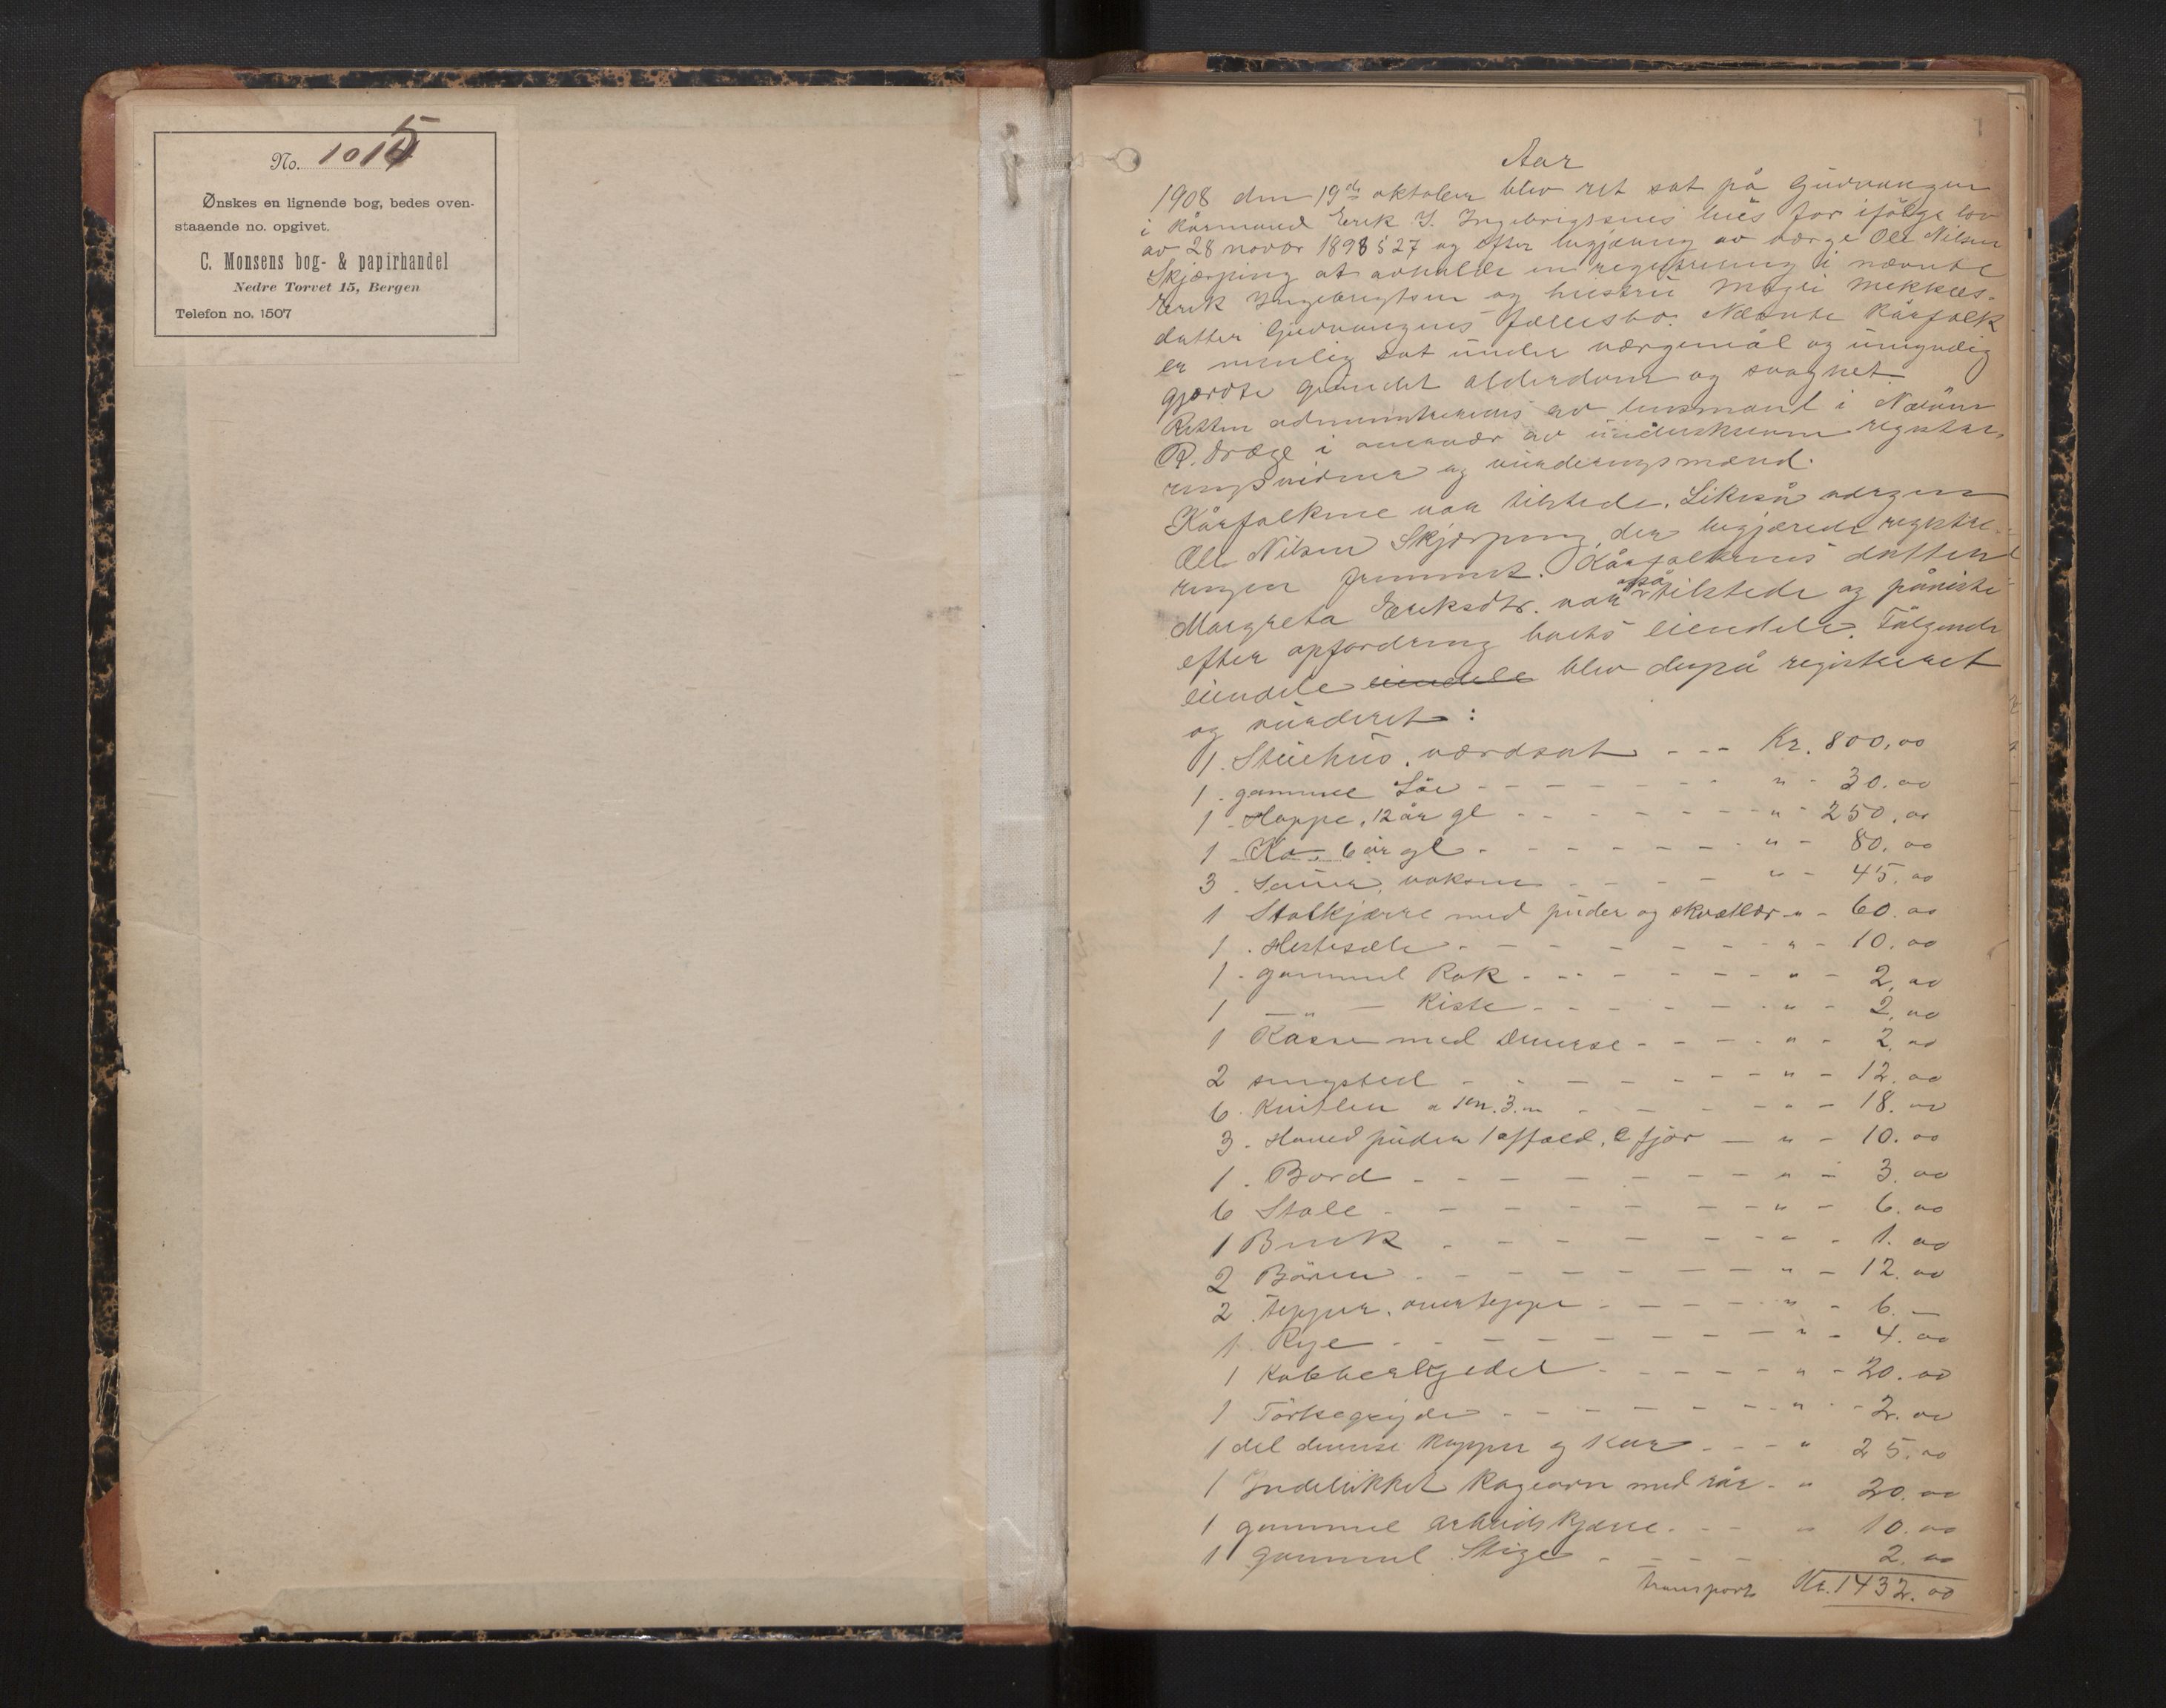 No. 1015
Ønskes en lignende bog, bedes oven-
staaende no. opgivet.
C. Monsens bog- & papirhandel
Nedre Torvet 15, Bergen
Telefon no. 1507
1
Aar
1908 den 19de oktober blev ret sat på Gudvangen
i Kårmand Erik I. Ingebrigtsens hus for ifölge lov
av 28 novbr 1898 § 27 og efter begjæring av værge Ole Nilsen
Skjerping at avholde en registrering i nævnte
Erik Ingebrigtsen og hustru
datter Gudvangens fællesbo. Nævnte Kårfolk
er nemlig sat under værgemål og umyndig
gjordte grundet alderdom og svaghet.
Retten administreres av lensmand i
R. Dræge i overvær av underskrevne registre-
ringsvidner og vurderingsmænd.
Kårfolkene var tilstede. Likeså værgen
Ole Nilsen Skjerping, der begjærede registre-
ringen fremmet. Kårfolkenes datter
Margreta Eriksdtr. var også tilstede og påviste
efter opfordring boets eiendele. Fölgende
eiendele eiendele blev derpå registreret
og vurderet:
1. Stuehus, værdsat - - - Kr. 800,00
1. gammel Löe - - - " - 30.00
1 - Hoppe, 12 år gl - - - " - 250.00
1 Ko 6 år gl - - - " - 80.00
3. Sauer, voksne - - - " - 45.00
1 Stolkjærre med puder og skvætlær - " - 60.00
1. Hestesæle - - - " - 10.00
1 - gammel Rok - - - " - 2.00
1 — " — Kiste - - - " - 2.00
1 Kasse med Diverse - - - " - 2.00
2 sengsted - - - " - 12.00
6. Knitler - - - 18.00
3. Hovedpuder 1 affald, 2 fjör — " - 10.00
1. Bord - - - " - 3.00
6 Stole - - - " - 6.00
1 Benk - - - 1.00
2 - - - " - 12.00
2. tepper, overtepper - - - " - 6. —
1. Rye - - - " - 4.00
1 Kobberkjedel - - - " - 20.00
1 - - - " - 2.00
1 del diverse kopper og kar - - - " 25.00
1 Indelukket Kogeovn med rör - " 20.00
1 gammel arbeidskjærre - - - " 10.00
1 gammel Stige - - - 2.00
Transport Kr. 1432.00